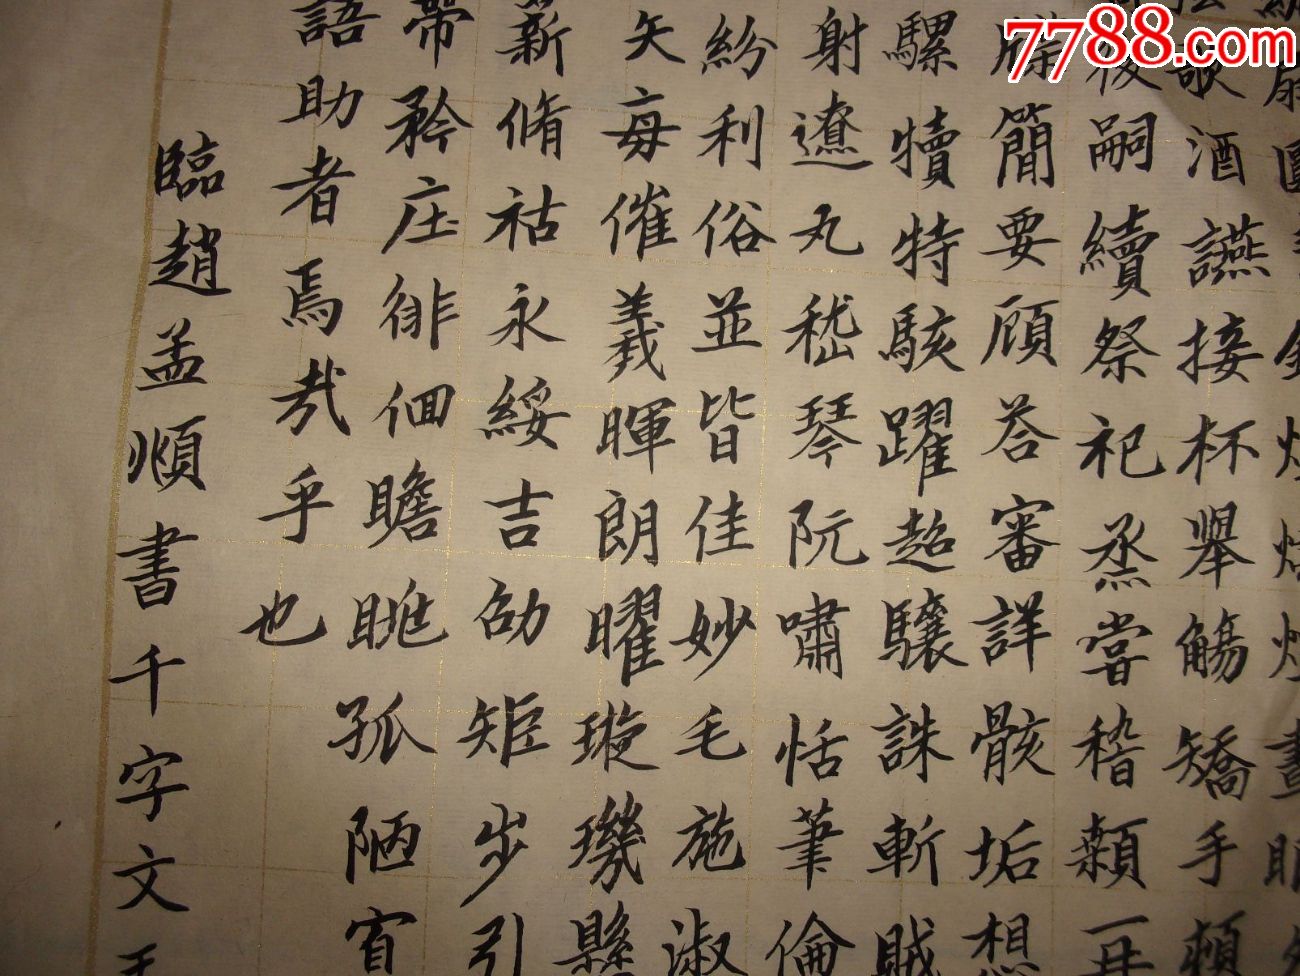 7788.com
扇圓
歌酒讌接杯舉觴矯手頓
後嗣續祭祀烝嘗稽顙再
牒簡要顧荅審詳骸垢想
騾犢特駭躍超驤誅斬賊
射遼丸嵇琴阮嘯恬筆倫
紛利俗並皆佳妙毛施淑
矢每催羲暉朗曜璇璣縣
薪脩祜永綏吉劭矩步引
帶矜庄徘徊瞻眺孤陋
語助者焉哉乎也
臨趙孟順書千字文